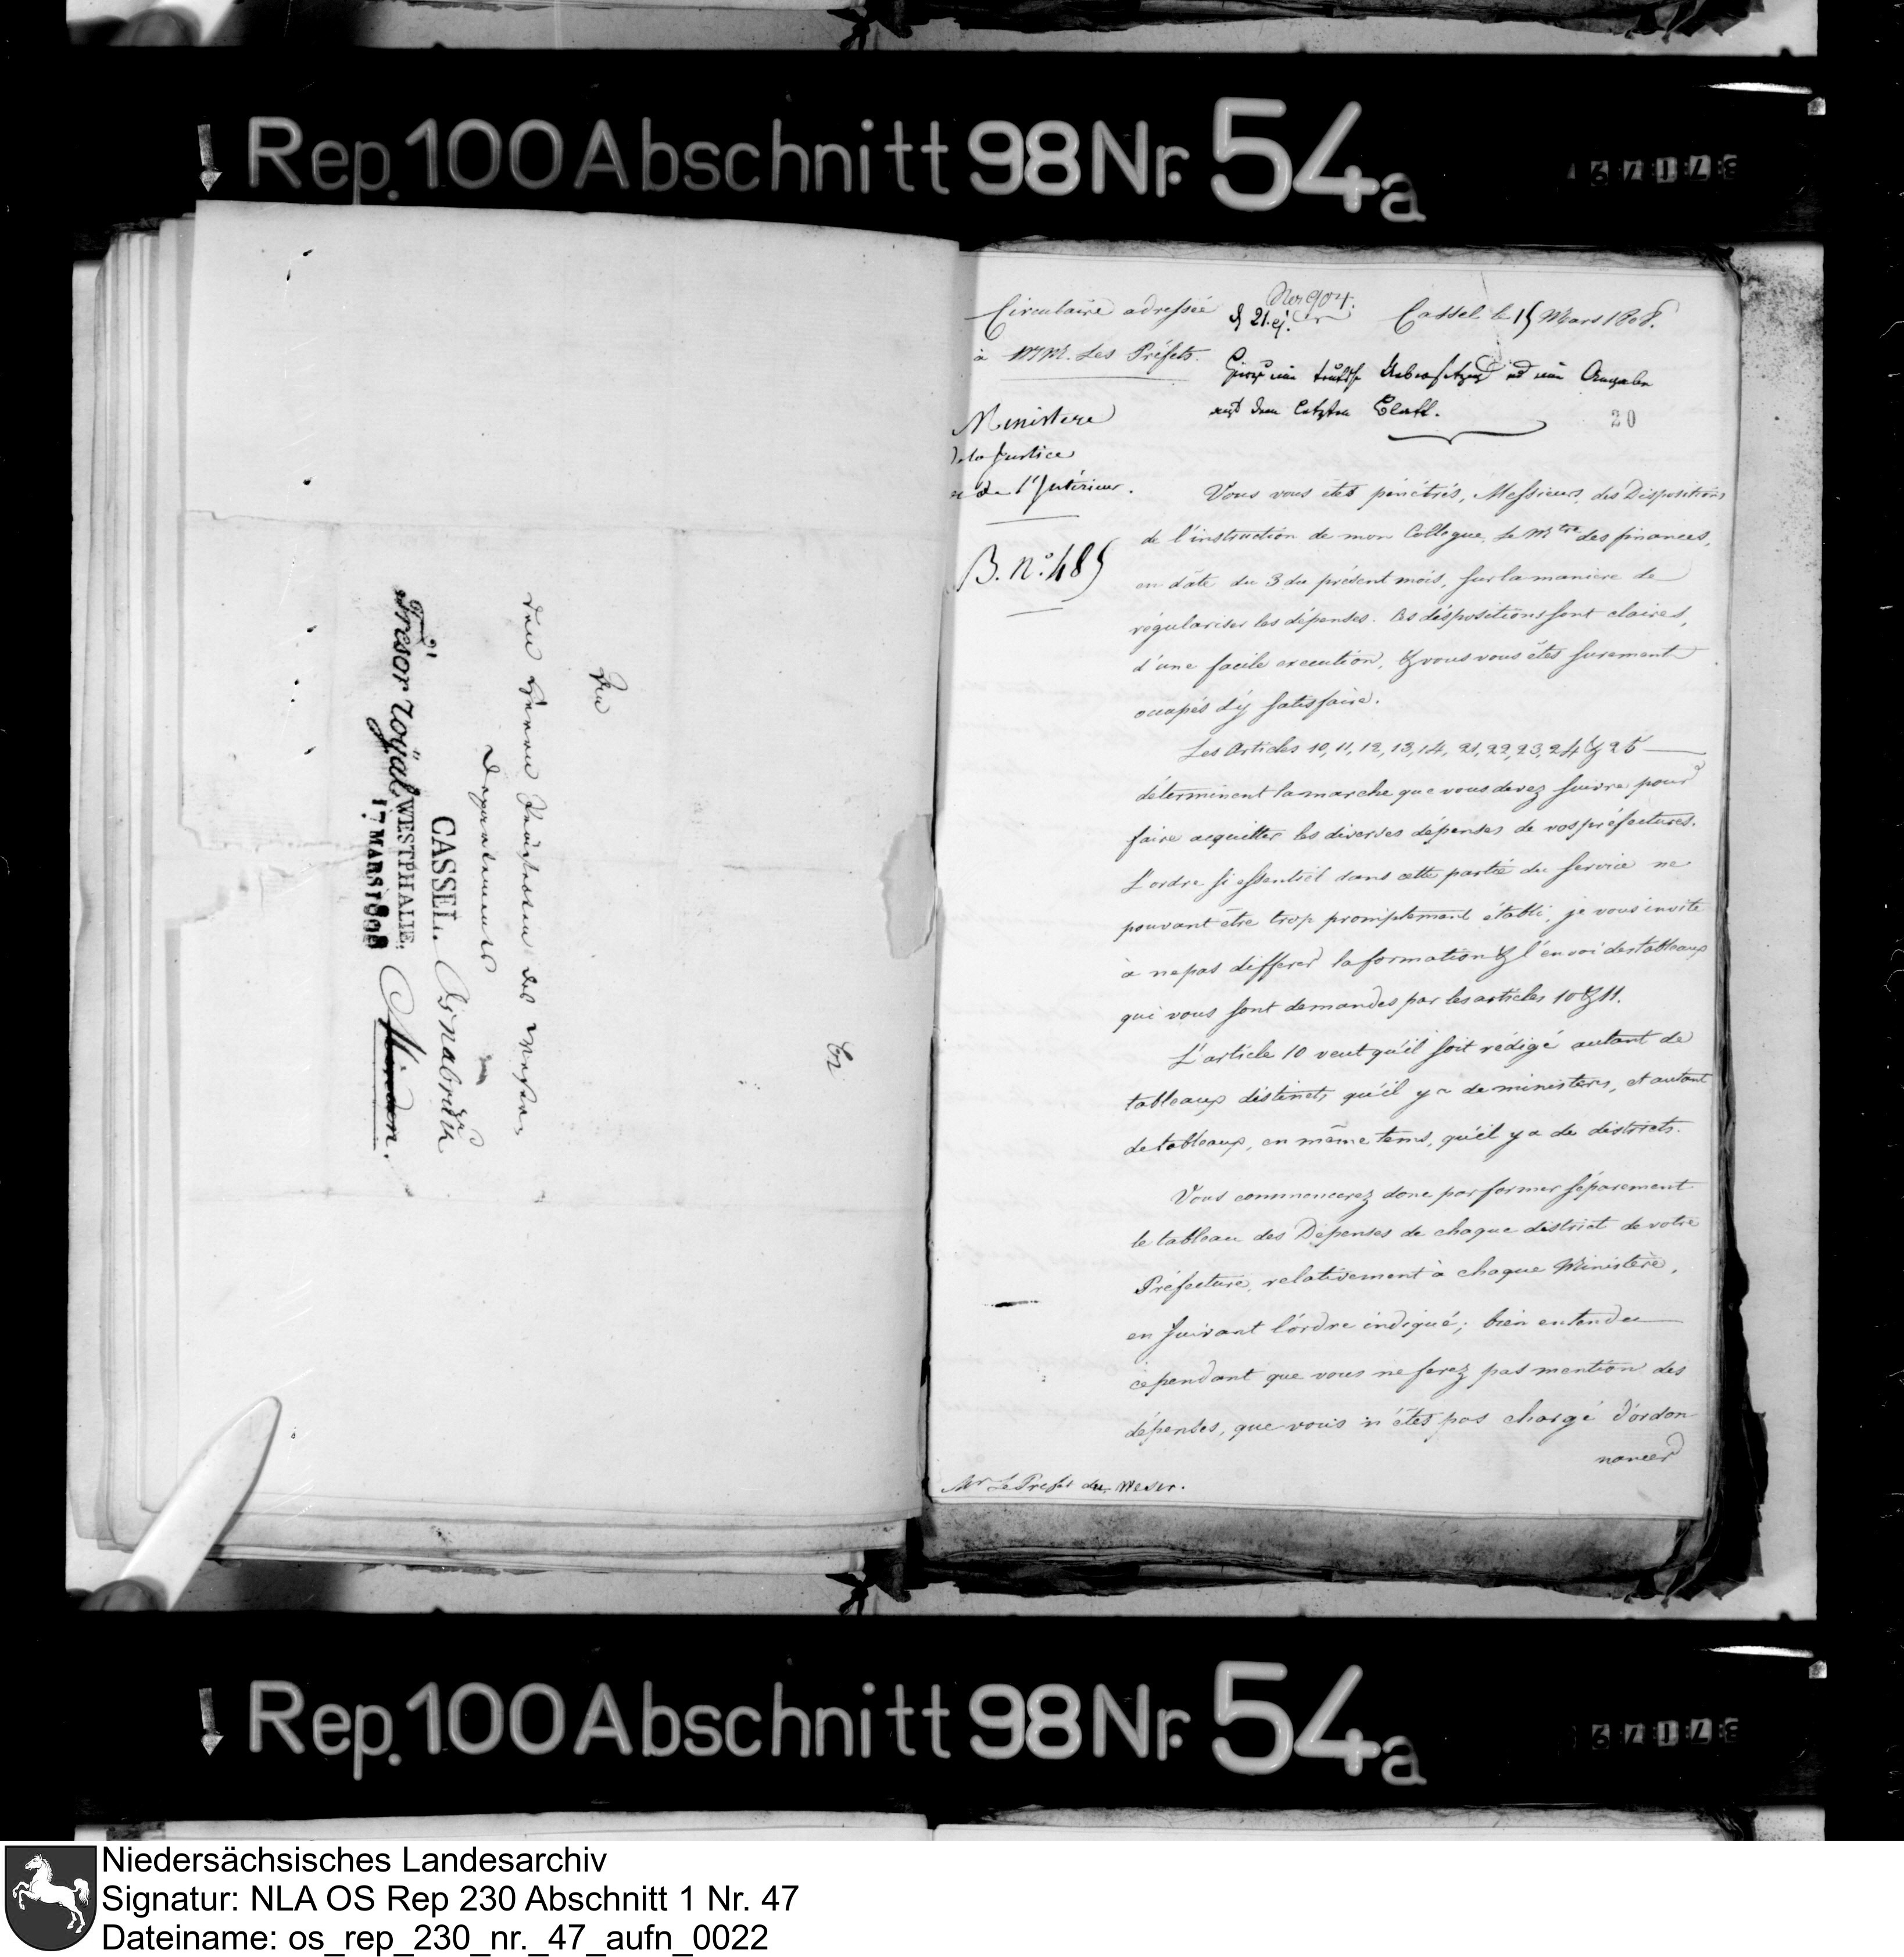 Rep. 100 Abschnitt 98 Nr. 54a
An
den Herrn Präfecten des Weser
Departements
CASSEL. Osnabrück
WESTPHALIE.
Trésor royal Minden.
17 MARS 1808
Circulaire adressée
à MM. Les Préfets.
Nr. 904.
Cassel le 15 Mars 1808.
aus dem letzten Blatt.
20
Ministere
de la Justice
et de l'Intérieur.
B. N.° 485
Vous vous êtes pénétrés, Messieurs, des Dispositions
de l'instruction de mon Collegue, Le Mtre des finances,
en date du 3 du présent mois, sur la maniere de
régulariser les dépenses. Ces dispositions sont claires,
d'une facile execution, & vous vous êtes surement
occupés d'y satisfaire.
Les Articles 10, 11, 12, 13, 14, 21, 22, 23, 24 & 25
déterminent la marche que vous devez suivre pour
faire acquitter les diverses dépenses de vos préfectures.
L'ordre si essentiel dans cette partie du service ne
pouvant être trop promptement établi, je vous invite
à ne pas differer la formation & l'envoi des tableaux
qui vous sont demandés par les articles 10 & 11.
L'article 10 veut qu'il soit rédigé autant de
tableaux distincts qu'il y a de ministères, et autant
de tableaux, en même tems, qu'il y a de districts.
Vous commencerez donc par former séparement
le tableau des Dépenses de chaque district de votre
Préfecture, relativement à chaque Ministère,
en suivant l'ordre indiqué; bien entendu
cependant que vous ne ferez pas mention des
dépenses, que vous n'êtes pas chargé d'ordon
nancer
Mr Le Prefet du Weser.
Rep. 100 Abschnitt 98 Nr. 54a
Niedersächsisches Landesarchiv
Signatur: NLA OS Rep 230 Abschnitt 1 Nr. 47
Dateiname: os_rep_230_nr._47_aufn_0022